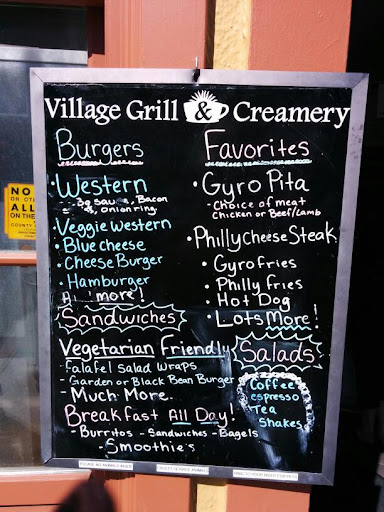 Village Grill & Creamery
Burgers
• Western
Bacon
onion ring
• Veggie Western
• Blue cheese
• Cheese Burger
• Hamburger
more!
Sandwiches
Favorites
• Gyro Pita
- Choice of meat
Chicken or Beef/Lamb
• Philly Cheese Steak
• Gyro fries
• Philly fries
• Hot Dog
• Lots More!
Vegetarian Friendly
- Falafel Salad Wraps
- Garden or Black Bean Burger
- Much More
Breakfast All Day!
- Burritos - Sandwiches - Bagels
- Smoothie's
Salads
Coffee
espresso
Tea
Shakes
NO
ALL
ON THE
COUNTY